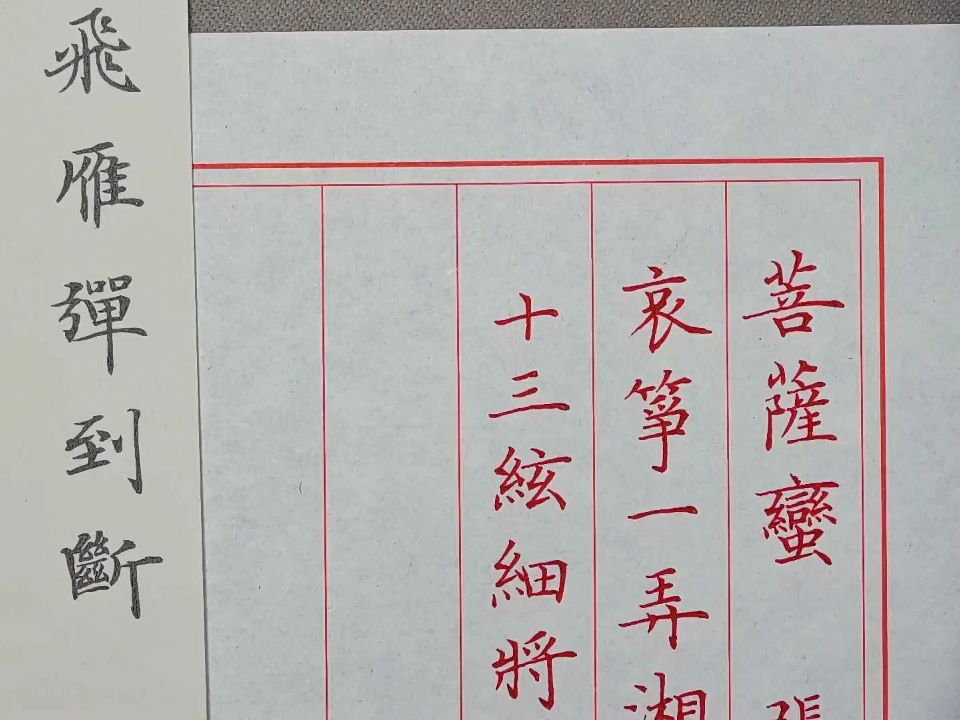 菩薩蠻 張
哀箏一弄湘
十三絃細將
飛雁彈到斷